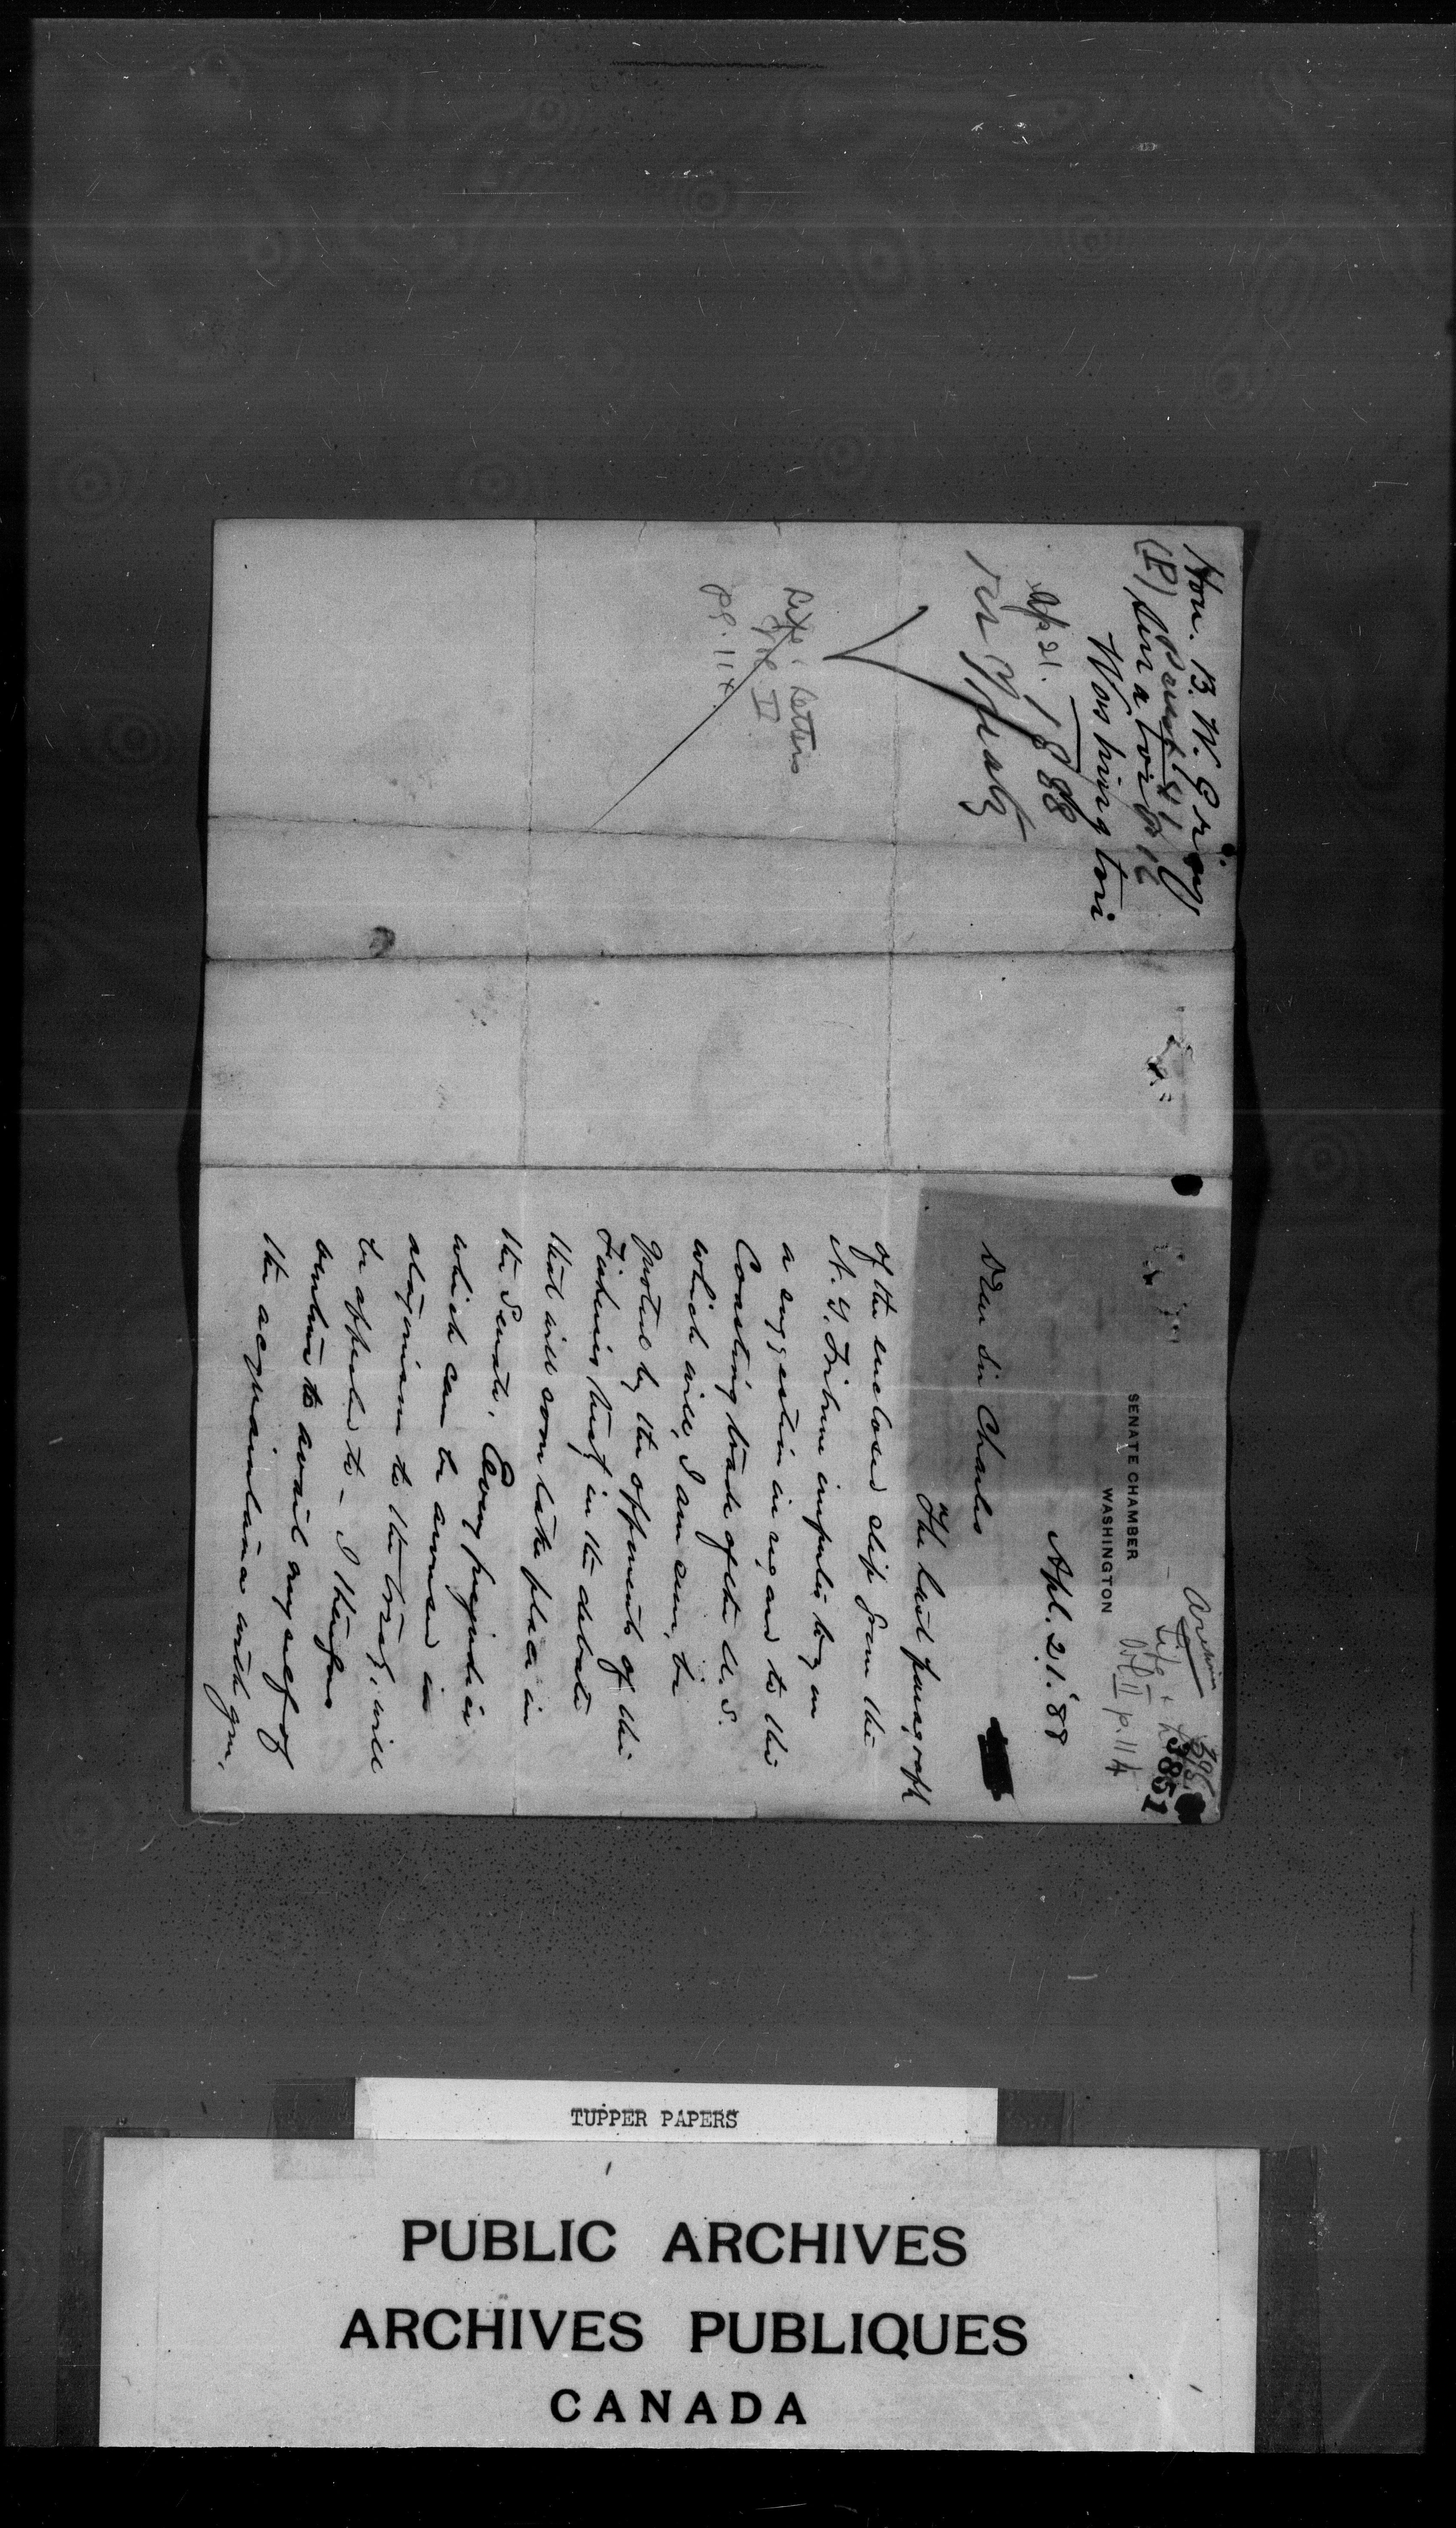 Hon. B. W. Gray
(P) Senator
Washington
Ap 21. 1888
res Treaty
Life & Letters
Vol. II
pg. 114
Archives
Life &
Vol II p. 114
3851
SENATE CHAMBER
WASHINGTON
Apl. 21. '88
Dear Sir Charles
The last paragraph
of the enclosed slip from the
N. Y. Tribune imputes to you
a suggestion in regard to the
Coasting trade of the U. S.
which will, I am sure, be
quoted by the opponents of the
Fisheries treaty in the debate
that will soon take place in
the Senate. Every prejudice
which can be aroused in
antagonism to the treaty, will
be appealed to - I therefore
venture to avail myself of
the acquaintance with you,
TUPPER PAPERS
PUBLIC ARCHIVES
ARCHIVES PUBLIQUES
CANADA